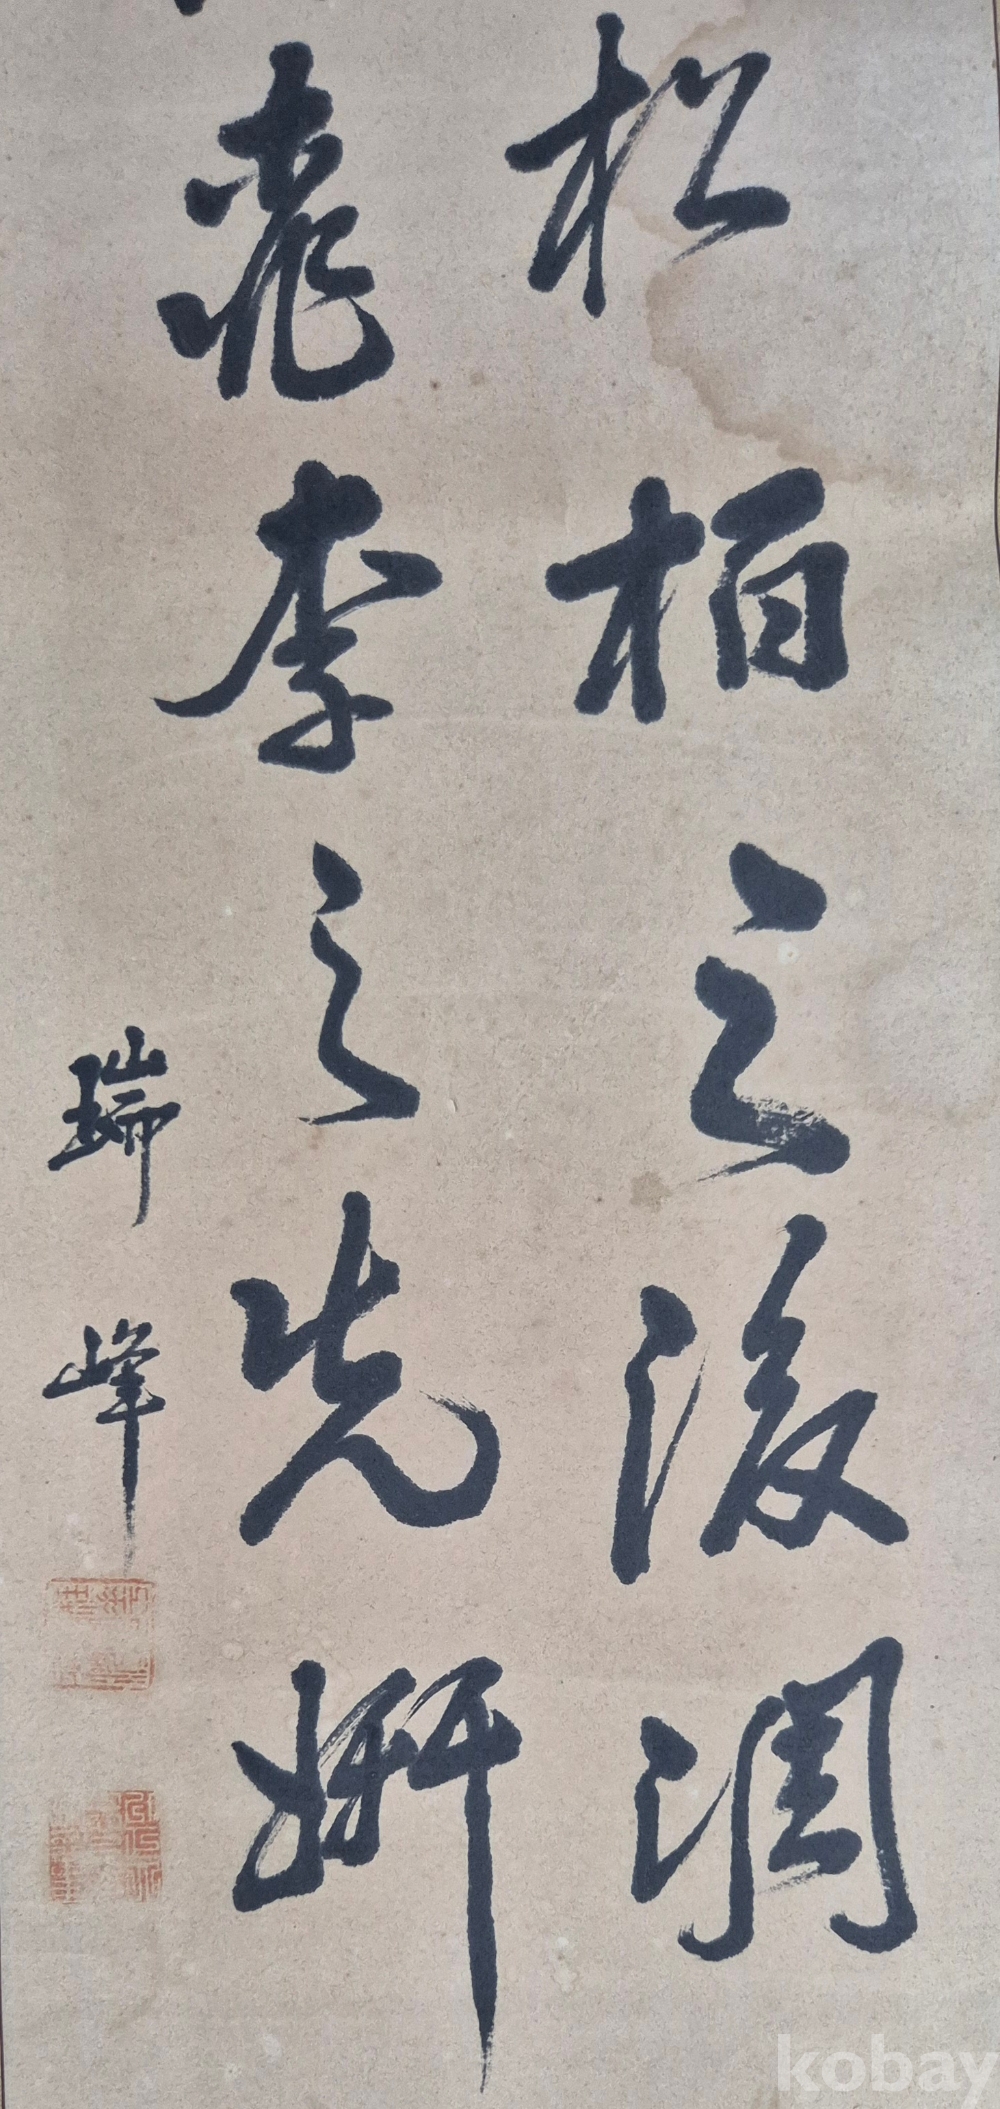 松柏之後凋
桃李之先姸
瑞峰
kobay